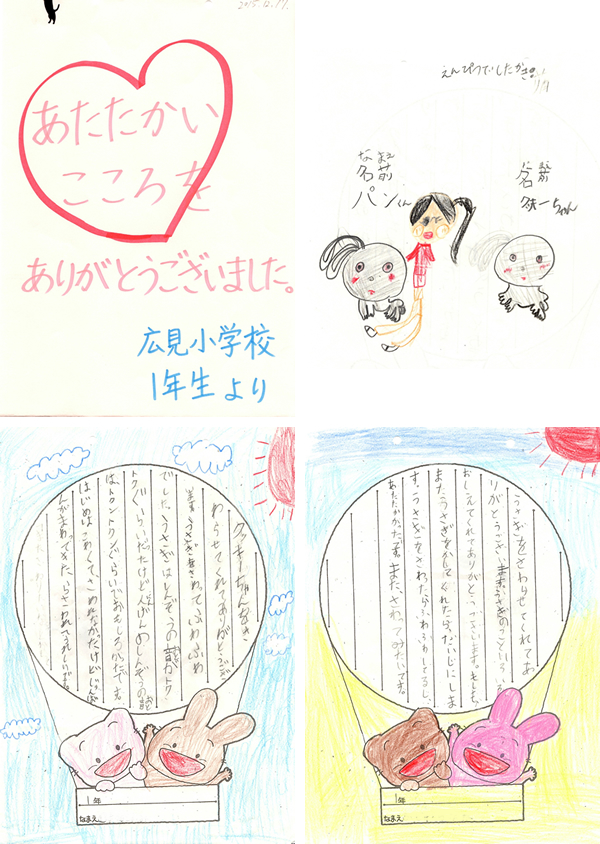 2015.12.17.
あたたかい
こころを
ありがとうございました。
広見小学校
1年生より
えんぴつでしたがき
なまえ
名前
パンくん
名前
クッキーちゃんをさ
わらせてくれてありがとうござ
でした。うさぎはしんぞうの音がトク
トクぐらいだったけどにんげんのしんぞうの音
は、トクントクンぐらいでおもしろかたです。
はじめは、こわくてさわれなかったけどじゅんば
んがまわってきたらさわれてうれしいです。
1年
なまえ
うさぎをさわらせてくれてあ
りがとうございますうさぎのこといろいろ
おしえてくれてありがとうございます。もしも、
またうさぎをかしてくれたら、だいじにしま
す。うさぎをさわたらふわふわしてるし、
あたたかかったです。またさわってみたいです。
1年
なまえ